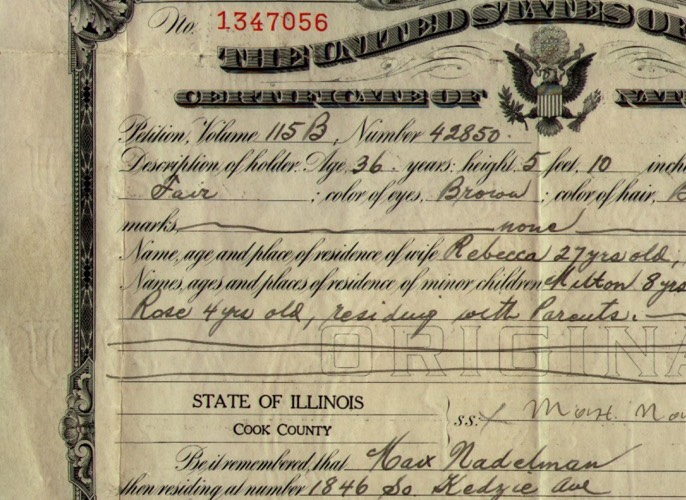 No. 1347056
THE UNITED STATES OF
CERTIFICATE OF NAT
Petition, Volume 115B, Number 42850.
Description of holder. Age, 36 years; height, 5 feet, 10 inch
Fair ; color of eyes, Brown ; color of hair, B
marks, none
Name, age and place of residence of wife Rebecca 27 yrs old,
Names, ages and places of residence of minor children Milton 8 yrs
Rose 4 yrs old, residing with Parents.
ORIGINA
STATE OF ILLINOIS
COOK COUNTY
ss: Max Na
Be it remembered, that Max Nadelman
then residing at number 1846 So. Kedzie Ave